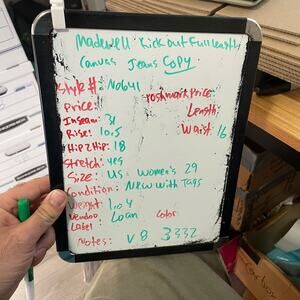 Madewell Kick out Full Length
Canvas Jeans Copy
Style #: No641
Poshmark Price:
Price:
Length:
Inseam: 31
Waist: 16
Rise: 10.5
Hip 2 Hip: 18
Stretch: yes
Size: US: Women's 29
Condition: New with Tags
Weight: 1.04
Vendoo Loan
Color:
Label
Notes: V8 3332